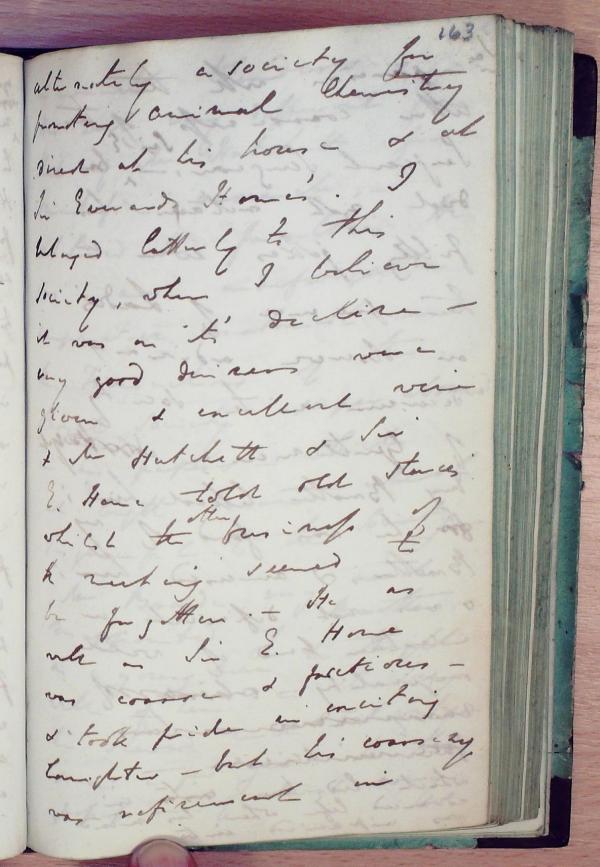 163
alternately a society for
promoting animal Chemistry
dined at his house & at
Sir Everard Home's. I
belonged latterly to this
society, when I believe
it was on its' decline —
very good dinners were
given & excellent wine
& Mr Hatchett & Sir
E. Home told old stories
whilst the other business of
the meeting seemed to
be forgotten. — He as
well as Sir E. Home
was coarse & facetious —
& took pride in exciting
laughter — but his coarseness
was refinement in